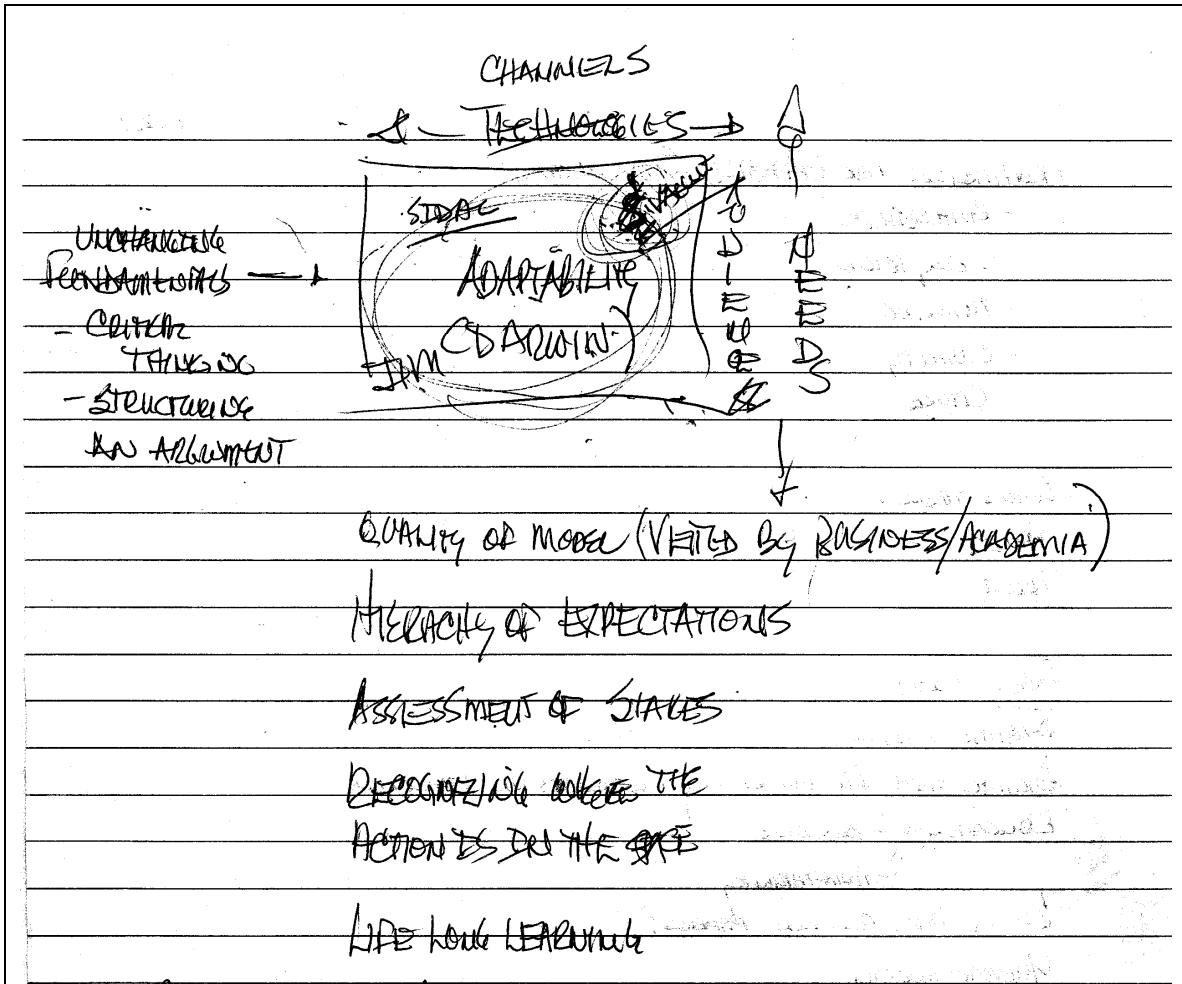 CHANNELS
TECHNOLOGIES
SIDAC
VALUE
UNCHANGING
FUNDAMENTALS
- CRITICAL
THINKING
- STRUCTURING
AN ARGUMENT
ADAPTABILITY
(DARWIN)
AUDIENCE
NEEDS
QUALITY OF MODEL (VETTED BY BUSINESS/ACADEMIA)
HIERACHY OF EXPECTATIONS
ASSESSMENT OF STAKES
RECOGNIZING WHERE THE
ACTION IS ON THE
LIFE LONG LEARNING